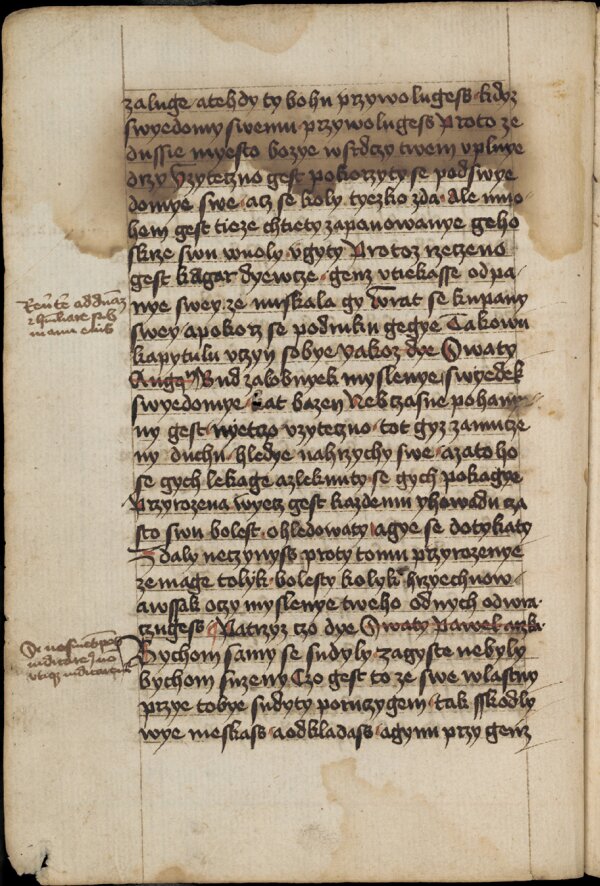 zaluge atehdy ty bohu przywolugess kdyz
swyedomy swemu przywolugess Proto ze
dussie myesto bozye wsrdczy twem vplnye
drzy Vzyteczno gest pokorzyty se podswye
domye swe acz se koly tyezko zda Ale mno
hem gest tieze chtiety zapanowanye geho
skrze swu wuoly vgyty Protoz rzeczeno
gest kAgar dyewcze genz vtiekasse odpa
nye swey ze nuiskala gy Wrat se kupany
swey apokorz se podruku gegye Takowu
kapytulu vczyn sobye yakoz dye Swaty
Augqn Bud zalobnyek myslenye swyedek
swyedomye kat bazen Neb czasne pohany
ny gest nyeczo vzyteczno tot gyz zamucze
ny duchu hledye nahrzychy swe azato ho
se gych lekage azleknuty se gych pokagye
Przyrozena wyecz gest kazdemu yhowadu cza
sto swu bolest ohledowaty agye se dotykaty
daly neczynyss proty tomu przyrozenye
ze mage tolyk bolesty kolyk hrzyechuow
awssak oczy myslenye tweho odnych odwra
czugess Patrzyz czo dye Swaty Pawel
Bychom samy se sudyly zagyste nebyly
bychom suzeny Czo gest to ze swe wlastny
przye tobye sudyty poruczygem tak sskodly
wye meskass aodkladass agynu przy genz